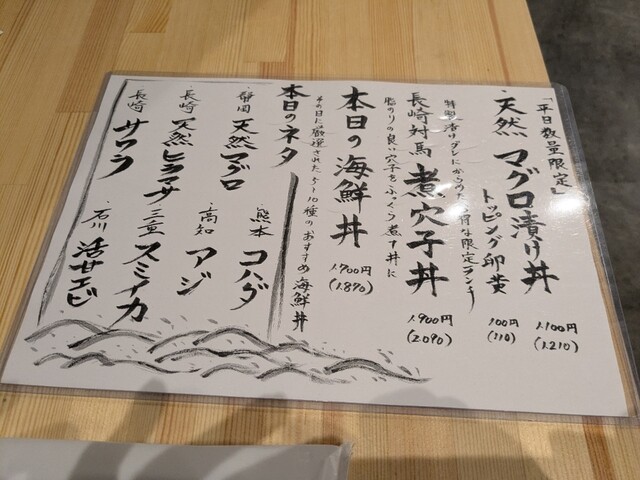 「平日数量限定」
・天然 マグロ漬け丼
1.100円
(1.210)
トッピング卵黄
100円
(110)
特製漬けダレにからめた平日限定ランチ
長崎対馬 煮穴子丼
1.900円
(2.090)
脂のりの良い穴子をふっくら煮て丼に
本日の海鮮丼
1.700円
(1.870)
その日に厳選された5~10種のおすすめ海鮮丼
本日のネタ
・静岡 天然マグロ
・熊本 コハダ
・長崎 天然ヒラマサ
・高知 アジ
・長崎 サワラ
・三重 スミイカ
・石川 活甘エビ